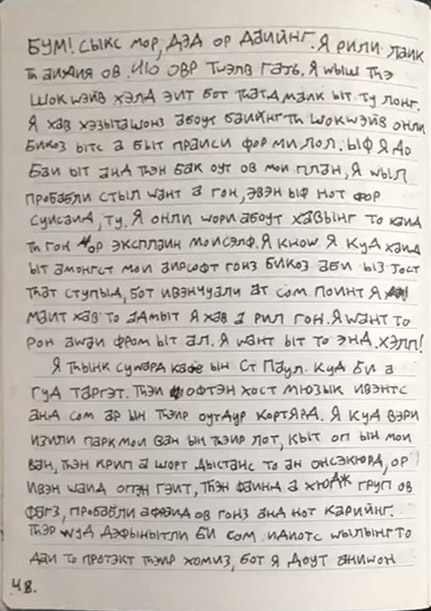 БУМ! СЫКС МОР, ДЭД ОР ДАИЙНГ. Я РИЛИ ЛАИК
Th АИДИЯ ОВ ОВР ТwЭЛВ ГАТЬ. Я wЫШ ThЭ
ШОК wЭЙВ ХЭЛД ЭИТ БОТ ThАТД МАИК ЫТ ТУ ЛОНГ.
Я ХАВ ХЭЗЫТАШОНЗ АБОУТ БАИЙНГ Th ШОКwЭЙВ ОНЛИ
БИКОЗ ЫТС А БЫТ ПРАИСИ ФОР МИ ЛОЛ. ЫФ Я ДО
БАИ ЫТ АНД ThЭН БАК ОУТ ОВ МОИ ПЛАН, Я wЫЛ
ПРОБАБЛИ СТЫЛ wАНТ А ГОН, ЭВЭН ЫФ НОТ ФОР
СУИСАИД, ТУ. Я ОНЛИ wОРИ АБОУТ ХАВЫНГ ТО ХАИД
Th ГОН ОР ЭКСПЛАИН МОИСЭЛФ. Я КНОw Я КУД ХАИД
ЫТ АМОНГСТ МОИ АИРСОФТ ГОНЗ БИКОЗ АБИ ЫЗ JОСТ
ThАТ СТУПЫД, БОТ ИВЭНЧУАЛИ АТ СОМ ПОИНТ Я
МАИТ ХАВ ТО АДМЫТ Я ХАВ А РИЛ ГОН. Я wАНТ ТО
РОН АwАИ ФРОМ ЫТ АЛ. Я wАНТ ЫТ ТО ЭНД. ХЭЛП!
Я ThЫНК СУМАРД КАФЕ ЫН СТ ПАУЛ. КУД БИ А
ГУД ТАРГЭТ. ThЭИ ОФТЭН ХОСТ МЮЗЫК ИВЭНТС
АНД СОМ АР ЫН ThЭИР ОУТДУР КОРТЯРД. Я КУД ВЭРИ
ИЗИЛИ ПАРК МОИ ВАН ЫН ThЭИР ЛОТ, КЫТ ОП ЫН МОИ
ВАН, ThЭН КРИП А ШОРТ ДЫСТАНС ТО АН ОНСЭКЮРД, ОР
ИВЭН wАИД ОПЭН ГЭИТ, ThЭН ФАИНД А ХЮДЖ ГРУП ОВ
ФАГЗ, ПРОБАБЛИ АФРАИД ОВ ГОНЗ АНД НОТ КАРИЙНГ.
ThЭР wУД ДЭФЫНЫТЛИ БИ СОМ ИДИОТС wЫЛЫНГ ТО
ДАИ ТО ПРОТЭКТ ThЭИР ХОМИЗ, БОТ Я ДОУТ АНИwОН
48.